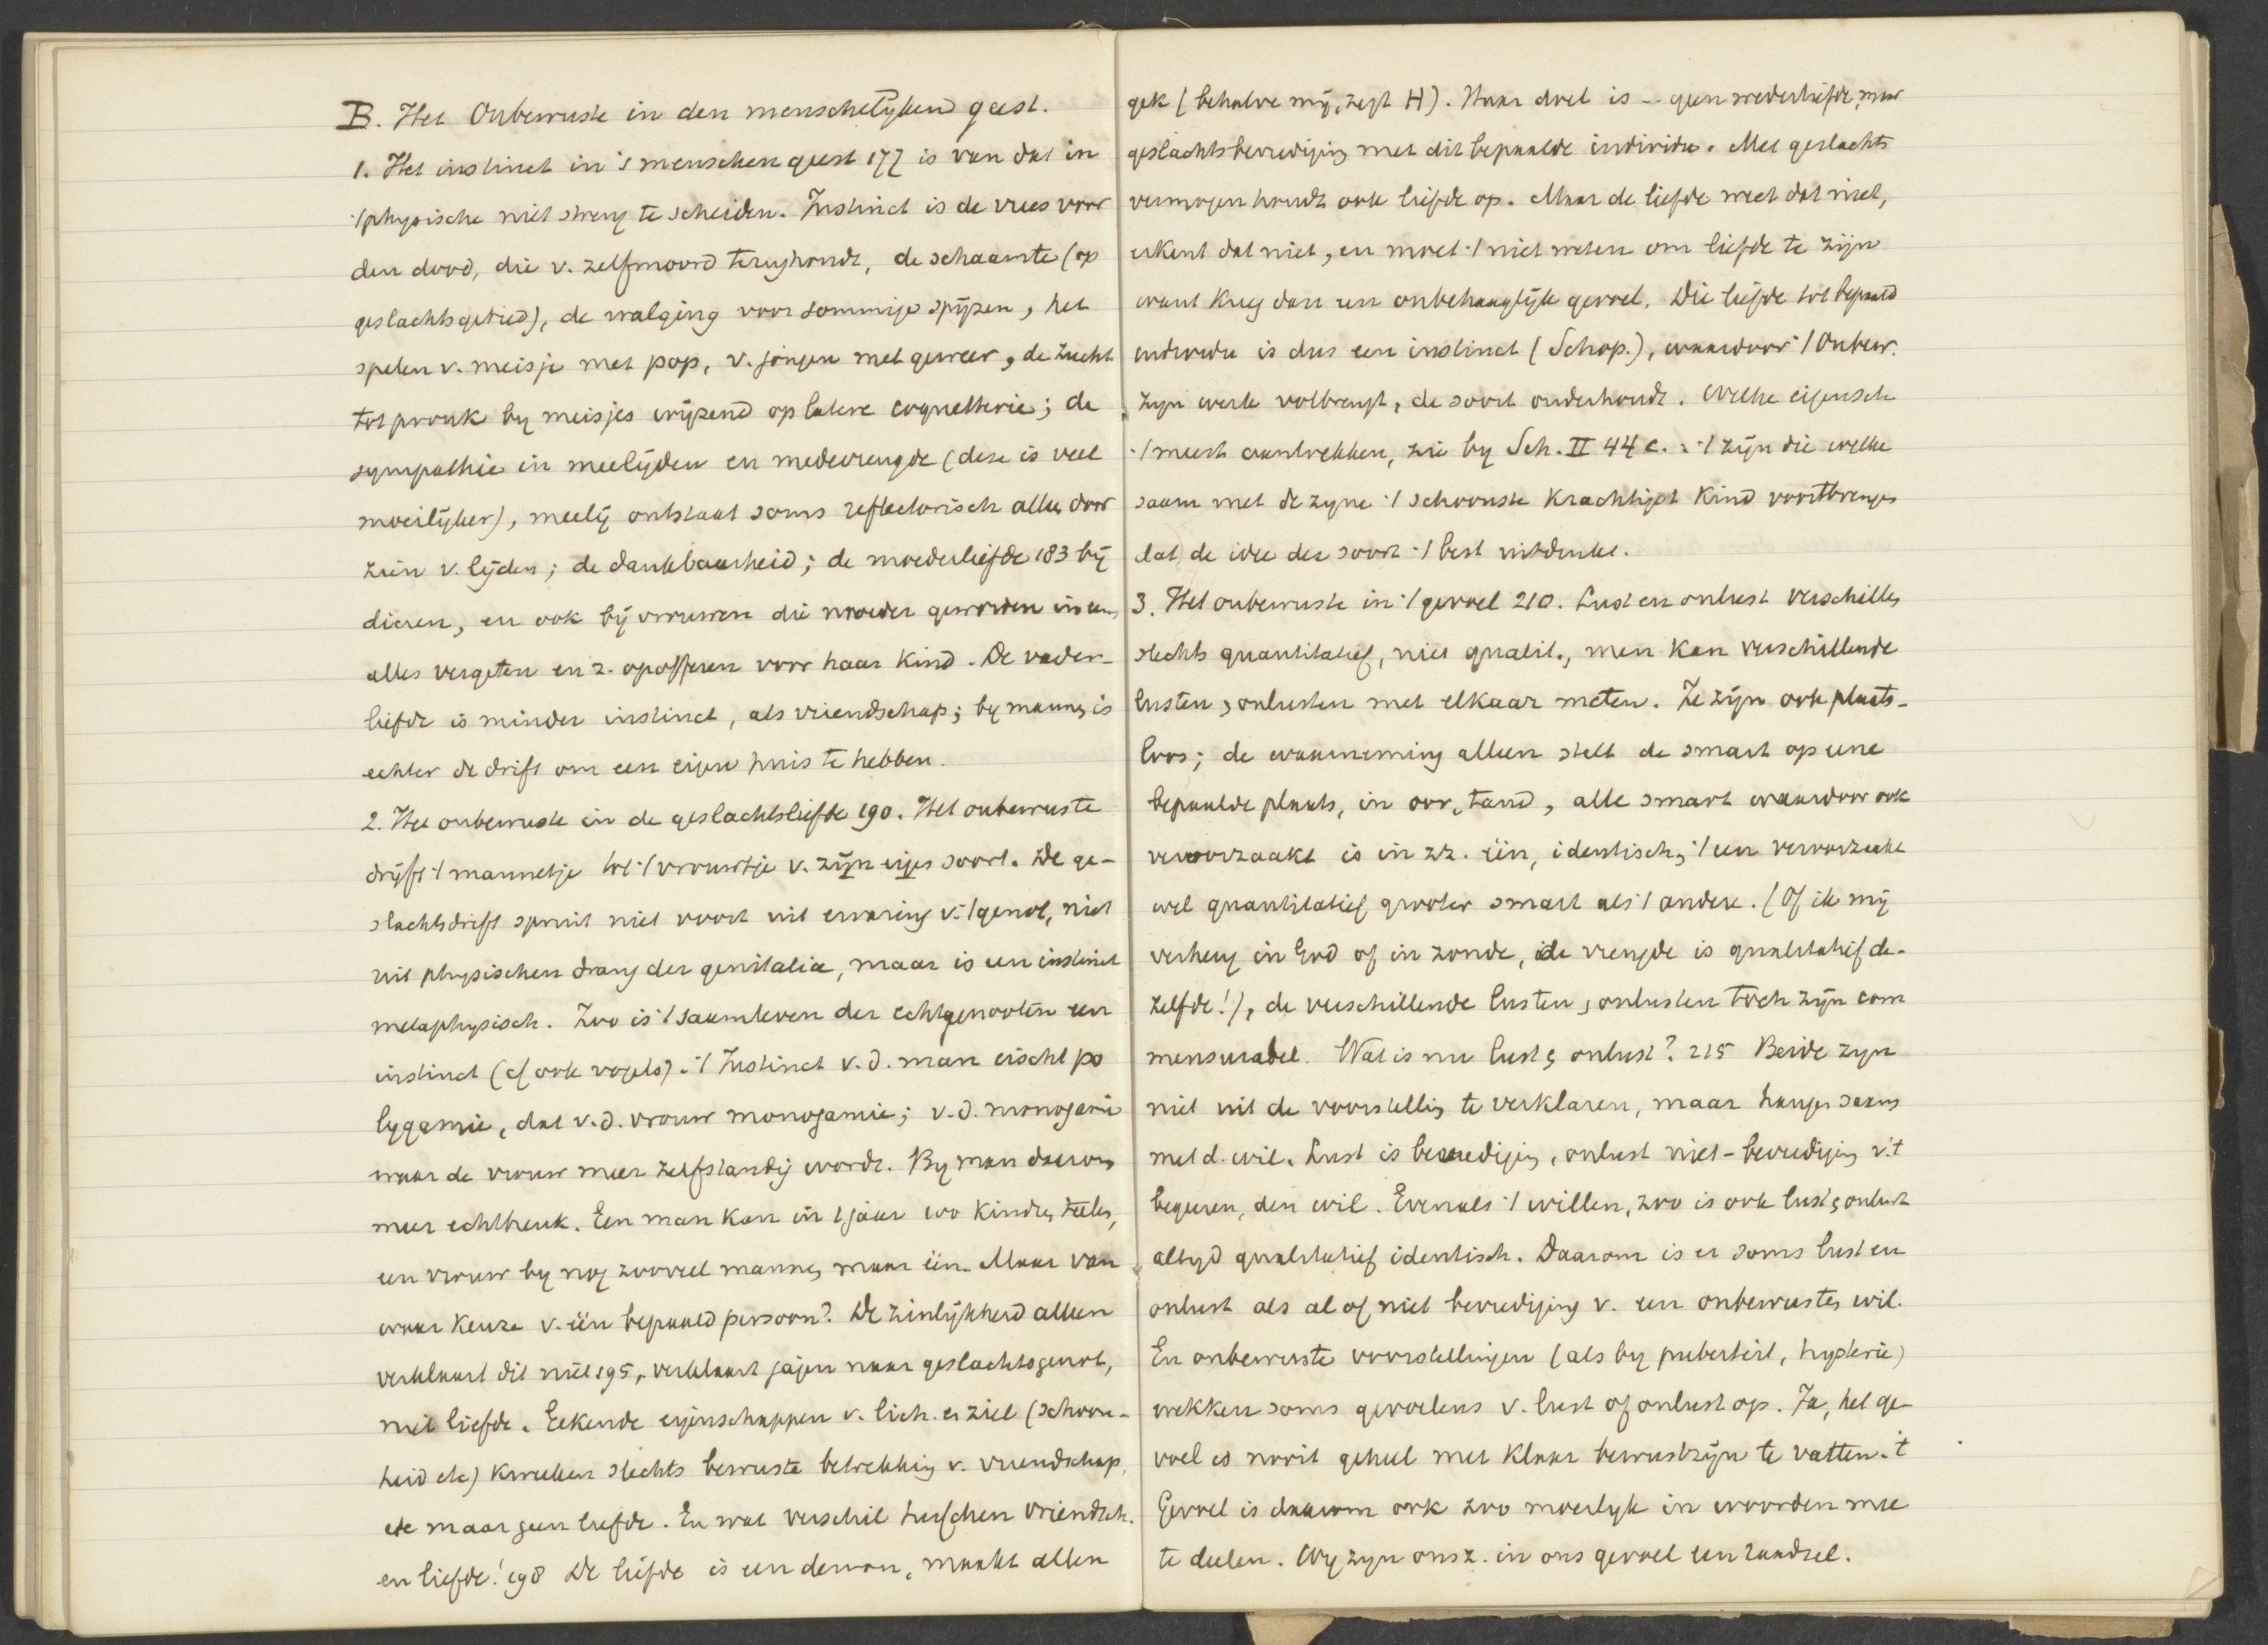 B. Het Onbewuste in den menschelijken geest.
1. Het instinct in 's menschen geest 177 is van dat in
't physische niet streng te scheiden. Instinct is de vrees voor
den dood, die v. zelfmoord terughoudt, de schaamte (op
geslachtsgebied), de walging voor sommige spijzen, het
spelen v. meisje met pop, v. jongen met geweer, de zucht
tot pronk by meisjes wijzend op latere coquetterie; de
sympathie in meelijden en medevreugde (deze is veel
moeilijker), meelij ontstaat soms reflectorisch alleen door
zien v. lijden; de dankbaarheid; de moederliefde 183 bij
dieren, en ook bij vrouwen die moeder geworden ineens
alles vergeten en z. opofferen voor haar kind. De vader-
liefde is minder instinct, als vriendschap; by mannen is
echter de drift om een eigen huis te hebben.
2. Het onbewuste in de geslachtsliefde 190. Het onbewuste
drijft 't mannetje tot 't vrouwtje v. zijn eigen soort. De ge-
slachtsdrift spruit niet voort uit ervaring v. 't genot, niet
uit physischen drang der genitalia, maar is een instinct
metaphysisch. Zoo is 't saamleven der echtgenooten een
instinct (cf ook vogels). 't Instinct v.d. man eischt po
lygamie, dat v.d. vrouw monogamie; v.d. monogamie
waar de vrouw meer zelfstandig wordt. By man daarom
meer echtbreuk. Een man kan in 1 jaar 100 kinderen telen,
een vrouw by nog zooveel mannen maar één. Maar van
waar keuze v. één bepaald persoon? De zinlijkheid alleen
verklaart dit niet 195, verklaart jagen naar geslachtsgenot,
niet liefde. Erkende eigenschappen v. lich. en ziel (schoon-
heid etc) kweeken slechts bewuste betrekking v. vriendschap,
etc maar geen liefde. En wat verschil tusschen vriendsch.
en liefde! 198 De liefde is een demon, maakt allen
gek (behalve mij, zegt H). Haar doel is -- geen wederliefde, maar
geslachtsbevrediging met dit bepaalde individu. Met geslachts
vermogen houdt ook liefde op. Maar de liefde weet dat niet,
erkent dat niet, en moet 't niet weten om liefde te zijn
want kreeg dan een onbehaaglijk gevoel. Die liefde tot bepaald
individu is dus een instinct (Schop.), waardoor 't Onbew.
zijn werk volbrengt, de soort onderhoudt. Welke eigensch
't meest aantrekken, zie by Sch. II 44 c. : 't zijn die welke
saam met de zyne 't schoonste krachtigst kind voortbrengen
dat de idee der soort 't best uitdrukt.
3. Het onbewuste in 't gevoel 210. Lust en onlust verschillen
slechts quantitatief, niet qualit., men kan verschillende
lusten, onlusten met elkaar meten. Ze zijn ook plaats-
loos; de waarneming alleen stelt de smart op eene
bepaalde plaats, in oor, tand, alle smart waardoor ook
veroorzaakt is in zz. één, identisch, 't een veroorzaakt
wel quantitatief grooter smart als 't andere. (Of ik mij
verheug in God of in zonde, de vreugde is qualitatief de-
zelfde!), de verschillende lusten, onlusten toch zijn com
mensurabel. Wat is nu lust, onlust? 215 Beide zyn
niet uit de voorstelling te verklaren, maar hangen saam
met d. wil. Lust is bevrediging, onlust niet-bevrediging v.'t
begeeren, den wil. Evenals 't willen, zoo is ook lust, onlust
altyd qualitatief identisch. Daarom is er soms lust en
onlust als al of niet bevrediging v. een onbewusten wil.
En onbewuste voorstellingen (als by puberteit, hysterie)
wekken soms gevoelens v. lust of onlust op. Ja, het ge-
voel is nooit geheel met klaar bewustzijn te vatten. 't
Gevoel is daarom ook zoo moeilyk in woorden mee
te deelen. Wy zyn ons z. in ons gevoel een raadsel.